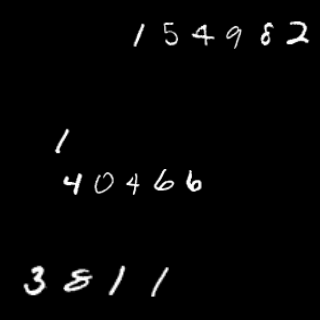 154982
1
40466
3811